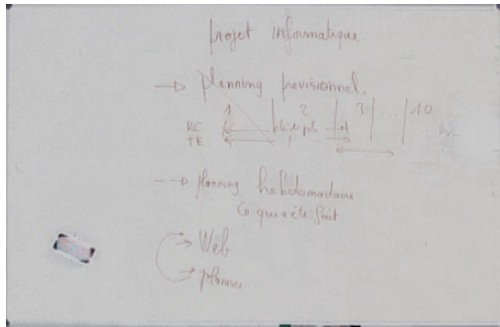 projet informatique
→ planning previsionnel.
1 2 3 ... 10
RC
TE
--→ planning hebdomadaire
Ce qui a été fait
→ Web
→ planner